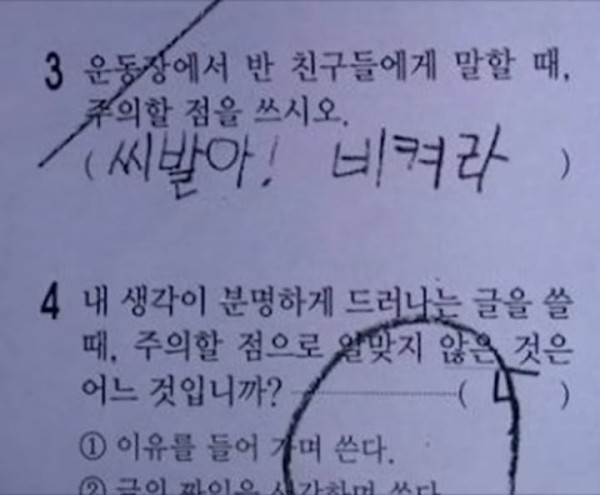 3 운동장에서 반 친구들에게 말할 때,
주의할 점을 쓰시오.
( 씨발아! 비켜라 )
4 내 생각이 분명하게 드러나는 글을 쓸
때, 주의할 점으로 알맞지 않은 것은
어느 것입니까? ( 4 )
① 이유를 들어 가며 쓴다.
② 글의 짜임을 생각하며 쓴다.